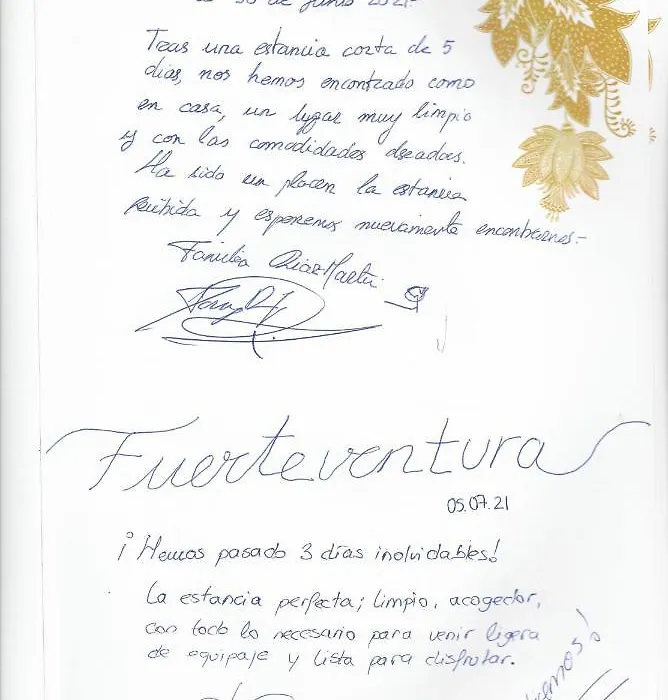 30 de junio 2021-
Tras una estancia corta de 5
dias, nos hemos encontrado como
en casa, un lugar muy limpio
y con las comodidades deseadas.
Ha sido un placer la estancia
recibida y esperemos nuevamente encontrarnos.-
Familia Diaz Martin
Fuerteventura
05.07.21
¡Hemos pasado 3 días inolvidables!
La estancia perfecta; limpio, acogedor,
con todo lo necesario para venir ligera
de equipaje y lista para disfrutar.